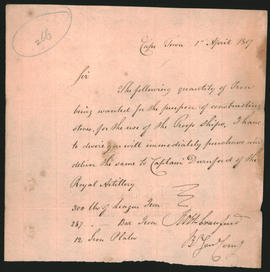 266
Cape Town 1st April 1807
Sir
The following quantity of Iron
being wanted for the purpose of constructing
stoves, for the use of the Troop Ships, I have
to desire you will immediately purchase and
deliver the same to Captain Durnford of the
Royal Artillery
300 lbs of Iron
287 Bar Iron Robt Craufurd
12 Iron Plates B. Genl Comg